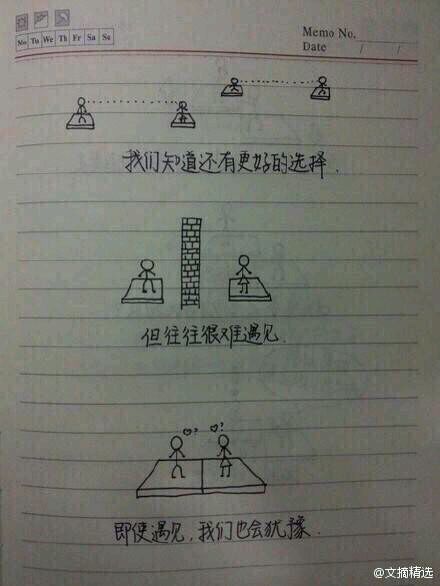 Memo No.
Mo Tu We Th Fr Sa Su
Date / /
我们知道还有更好的选择.
但往往很难遇见.
♡? ♡?
即使遇见,我们也会犹豫.
@文摘精选